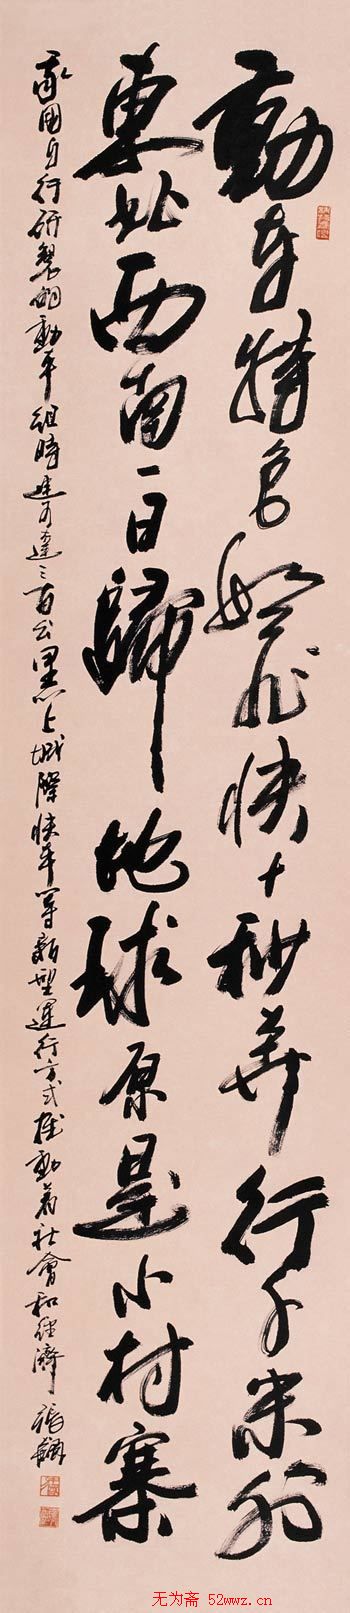 動車特飛快十秒奔行千米外
東北西南一日歸地球原是小村寨
我國自行研製的動車組時速可達三百公里以上城際快車等新型運行方式推動着社會和經濟 張飆
无为斋 52wwz.cn